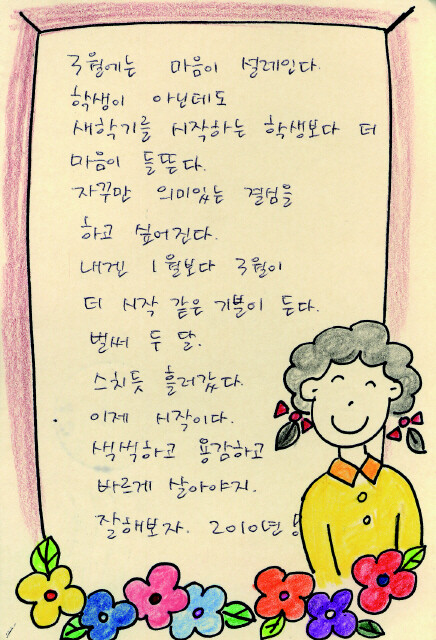 3월에는 마음이 설레인다.
학생이 아닌데도
새학기를 시작하는 학생보다 더
마음이 들뜬다.
자꾸만 의미있는 결심을
하고 싶어진다.
내겐 1월보다 3월이
더 시작 같은 기분이 든다.
벌써 두 달.
스치듯 흘러갔다.
이제 시작이다.
씩씩하고 용감하고
바르게 살아야지.
잘해보자. 2010년